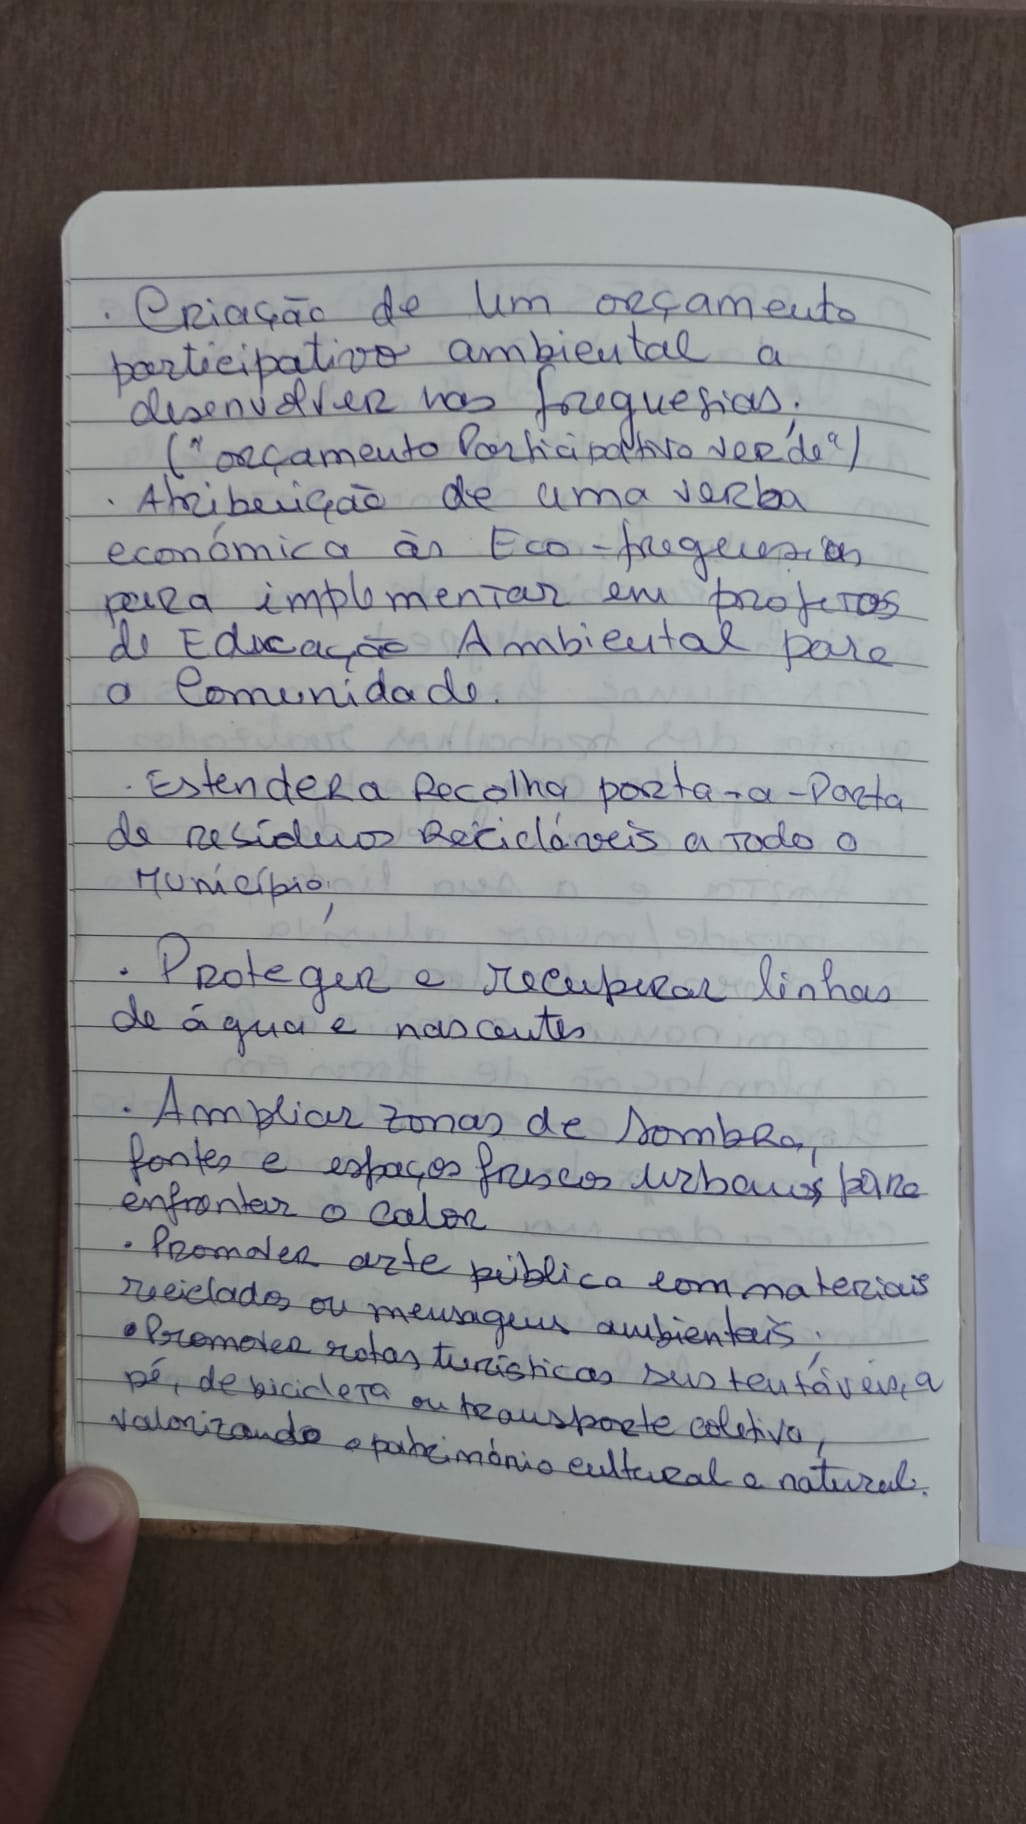 . Criação de um orçamento
participativo ambiental a
desenvolver nas freguesias;
("orçamento Participativo verde")
. Atribuição de uma verba
económica às Eco-freguesias
para implementar em projetos
de Educação Ambiental para
a Comunidade.
. Estender a Recolha porta-a-Porta
de resíduos Recicláveis a todo o
Município;
. Proteger e recuperar linhas
de água e nascentes
. Ampliar zonas de sombra,
fontes e espaços frescos urbanos para
enfrentar o calor
. Promover arte pública com materiais
reciclados ou mensagens ambientais;
. Promover rotas turísticas sustentáveis, a
pé, de bicicleta ou transporte coletivo,
valorizando o património cultural e natural.